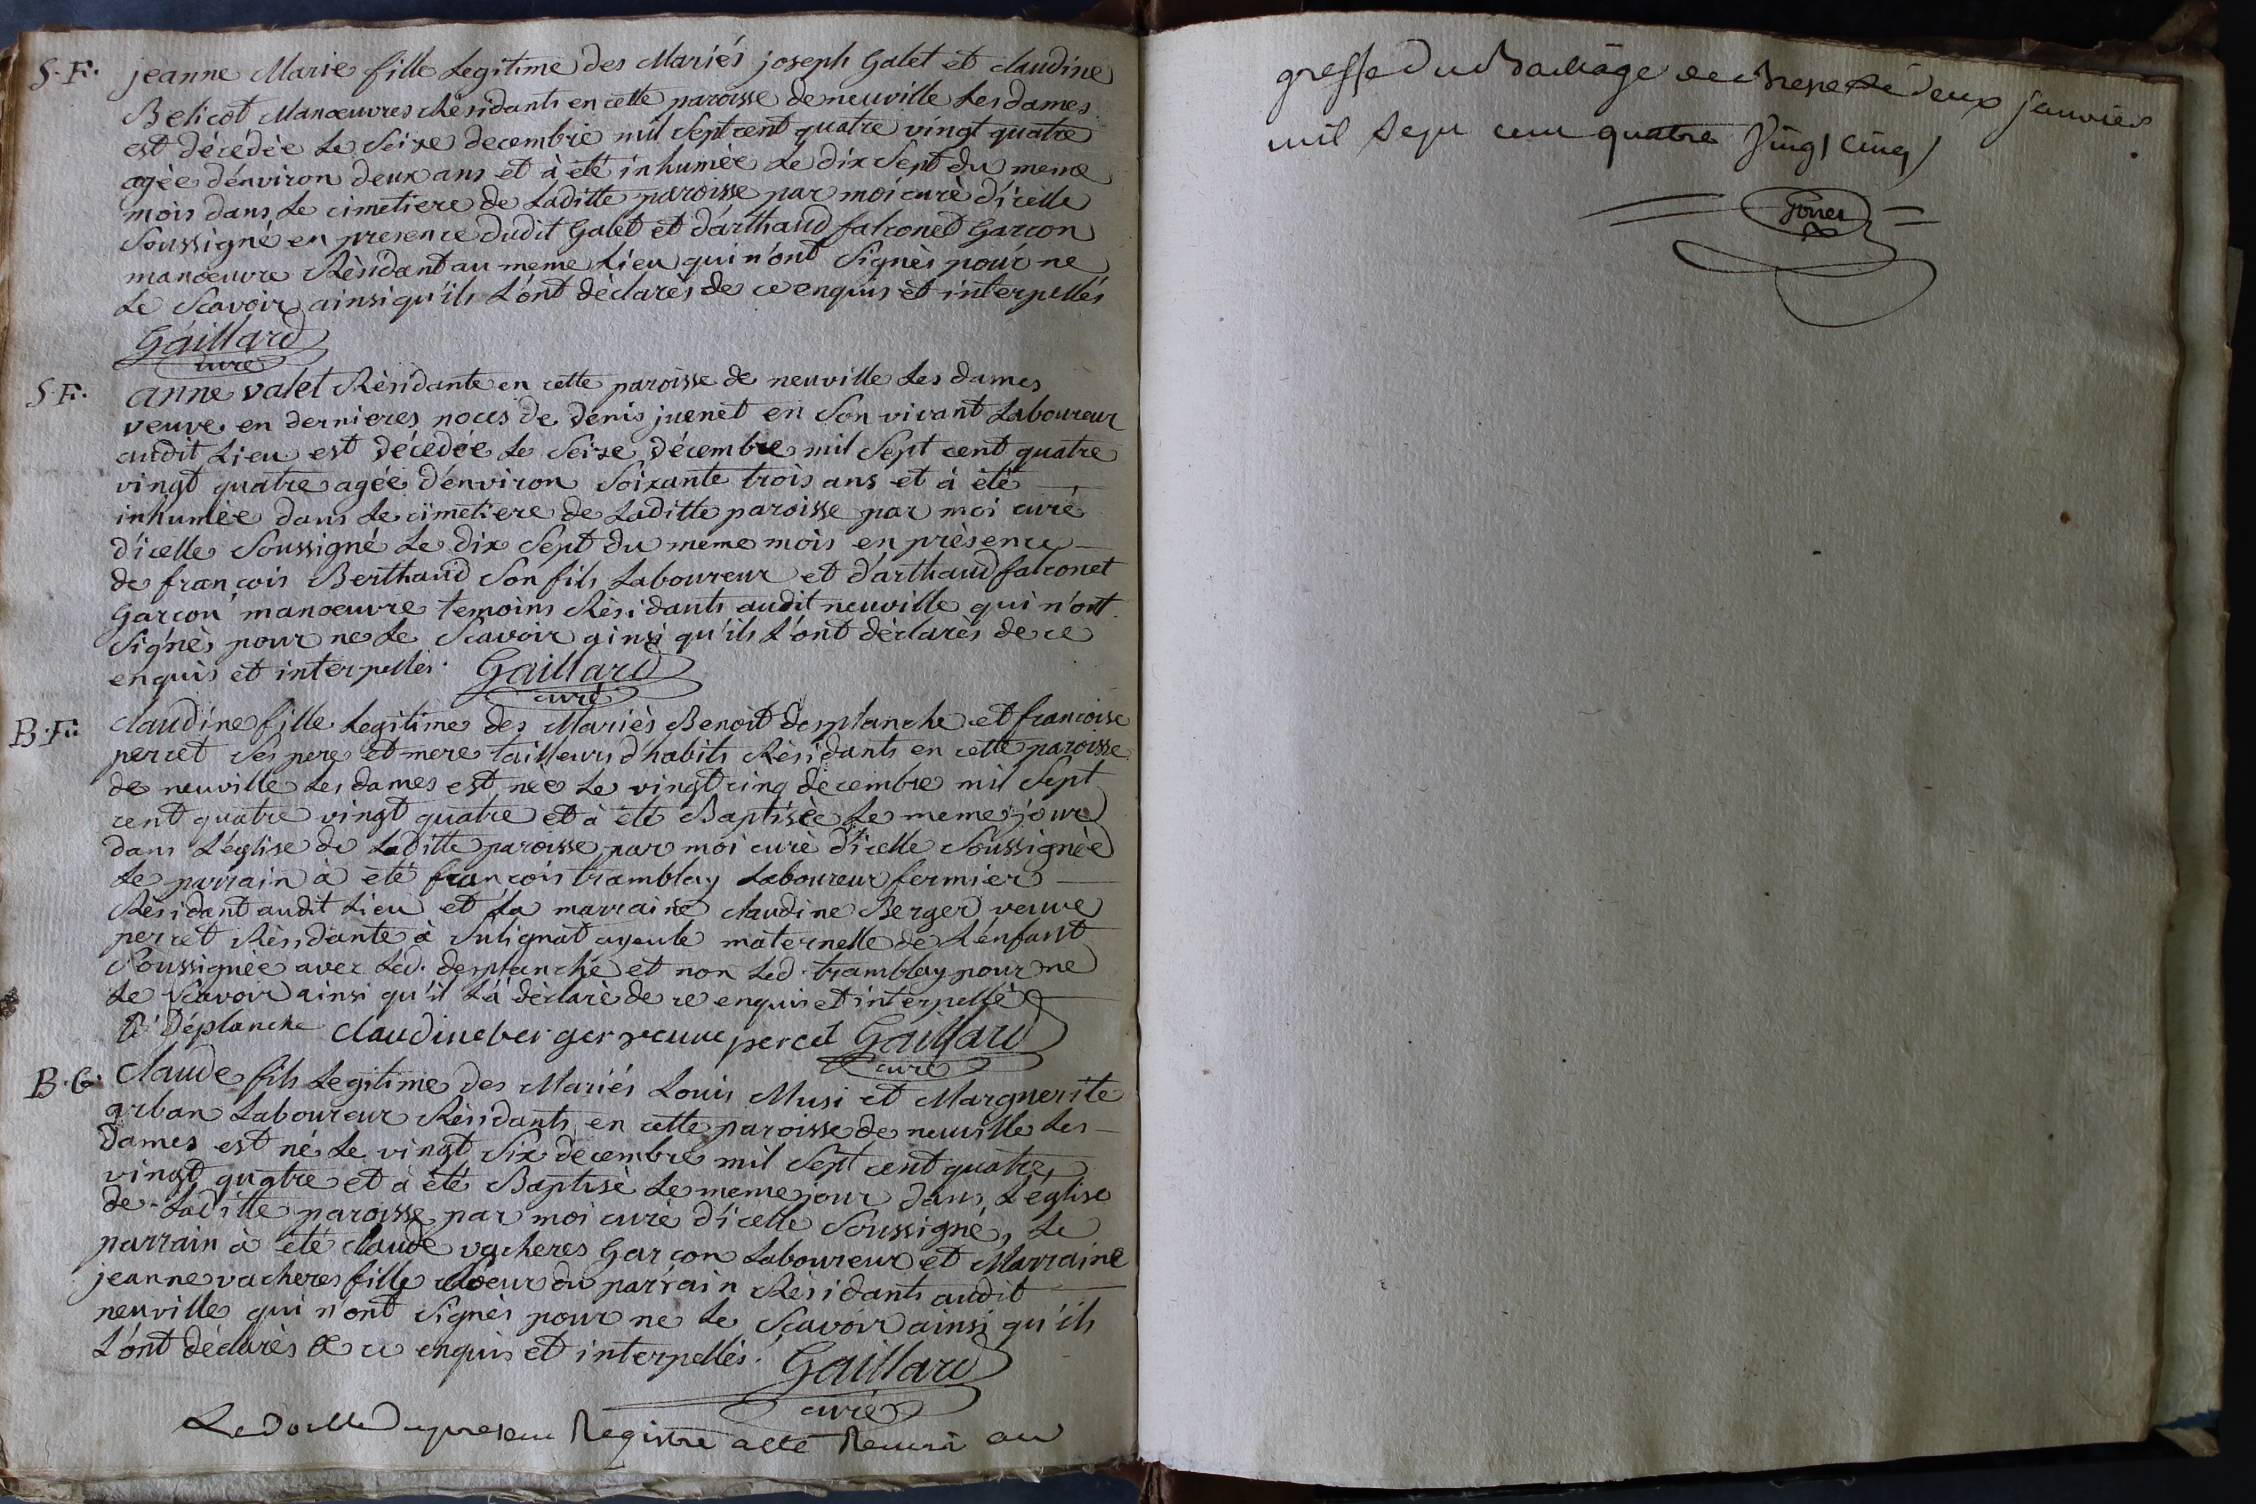 S. F. jeanne Marie fille Legitime des Mariés joseph Galet et claudine
Belicot Manœuvres Résidants en cette paroisse de neuville Les dames
est décédée Le Seize decembre mil Sept cent quatre vingt quatre
agée d'énviron deux ans et à été inhumée Le dix Sept du meme
mois dans Le cimetiere de Laditte paroisse par moi curé d'icelle
Soussigné en presence dudit Galet et d'arthaud falconet Garcon
manœuvre Résidant au meme Lieu qui n'ont Signès pour ne
Le Scavoir ainsi qu'ils L'ont dèclarès de ce enquis et interpellés
Gaillard
curé
S. F. anne valet Résidante en cette paroisse de neuville Les dames
veuve en dernieres noces de denis juenet en Son vivant Laboureur
audit Lieu est décédée Le Seize décembre mil Sept cent quatre
vingt quatre agée d'énviron Soixante trois ans et à été
inhumée dans Le cimetiere de Laditte paroisse par moi curé
d'icelle Soussigné Le dix Sept du meme mois en présence
de françois Berthaud Son fils Laboureur et d'arthaud falconet
Garçon manœuvre temoins Résidants audit neuville qui n'ont
Signès pour ne Le Scavoir ainsi qu'ils L'ont déclarès de ce
enquis et interpellés. Gaillard
curé
B. F. claudine fille Legitime des Mariès Benoit desplanche et francoise
perret Ses pere et mere tailleurs d'habits Résidants en cette paroisse
de neuville Les dames est née Le vingt cinq décembre mil Sept
cent quatre vingt quatre et à été Baptisée Le meme jour
dans L'église de Laditte paroisse par moi curé d'icelle Soussignée
Le parrain à été françois tramblay Laboureur fermier
Résidant audit Lieu et La marraine claudine Berger veuve
perret Résidante à Sulignat ayeule maternelle de L'énfant
Soussignée avec Led. desplanche et non Led. tramblay pour ne
Le Scavoir ainsi qu'il L'à dèclarè de ce enquis et interpellé
B Déplanche claudine berger veuve percet Gaillard
curé
B. G. Claude fils Legitime des Mariés Louis Musi et Marguerite
arban Laboureur Résidants en cette paroisse de neuville Les
dames est né Le vingt Six decembre mil Sept cent quatre
vingt quatre et à été Baptisè Le meme jour dans L'église
de Laditte paroisse par moi curé d'icelle Soussigné, Le
parrain à été claude vacheres Garçon Laboureur et Marraine
jeanne vacheres fille Soeur du parrain Résidants audit
neuville qui n'ont Signès pour ne Le Scavoir ainsi qu'ils
L'ont déclarès de ce enquis et interpellés. Gaillard
curé
Le Double du present Registre a eté Remis au
greffe du Bailliage de Bresse Le deux janvier
mil Sept cent quatre Vingt Cinq